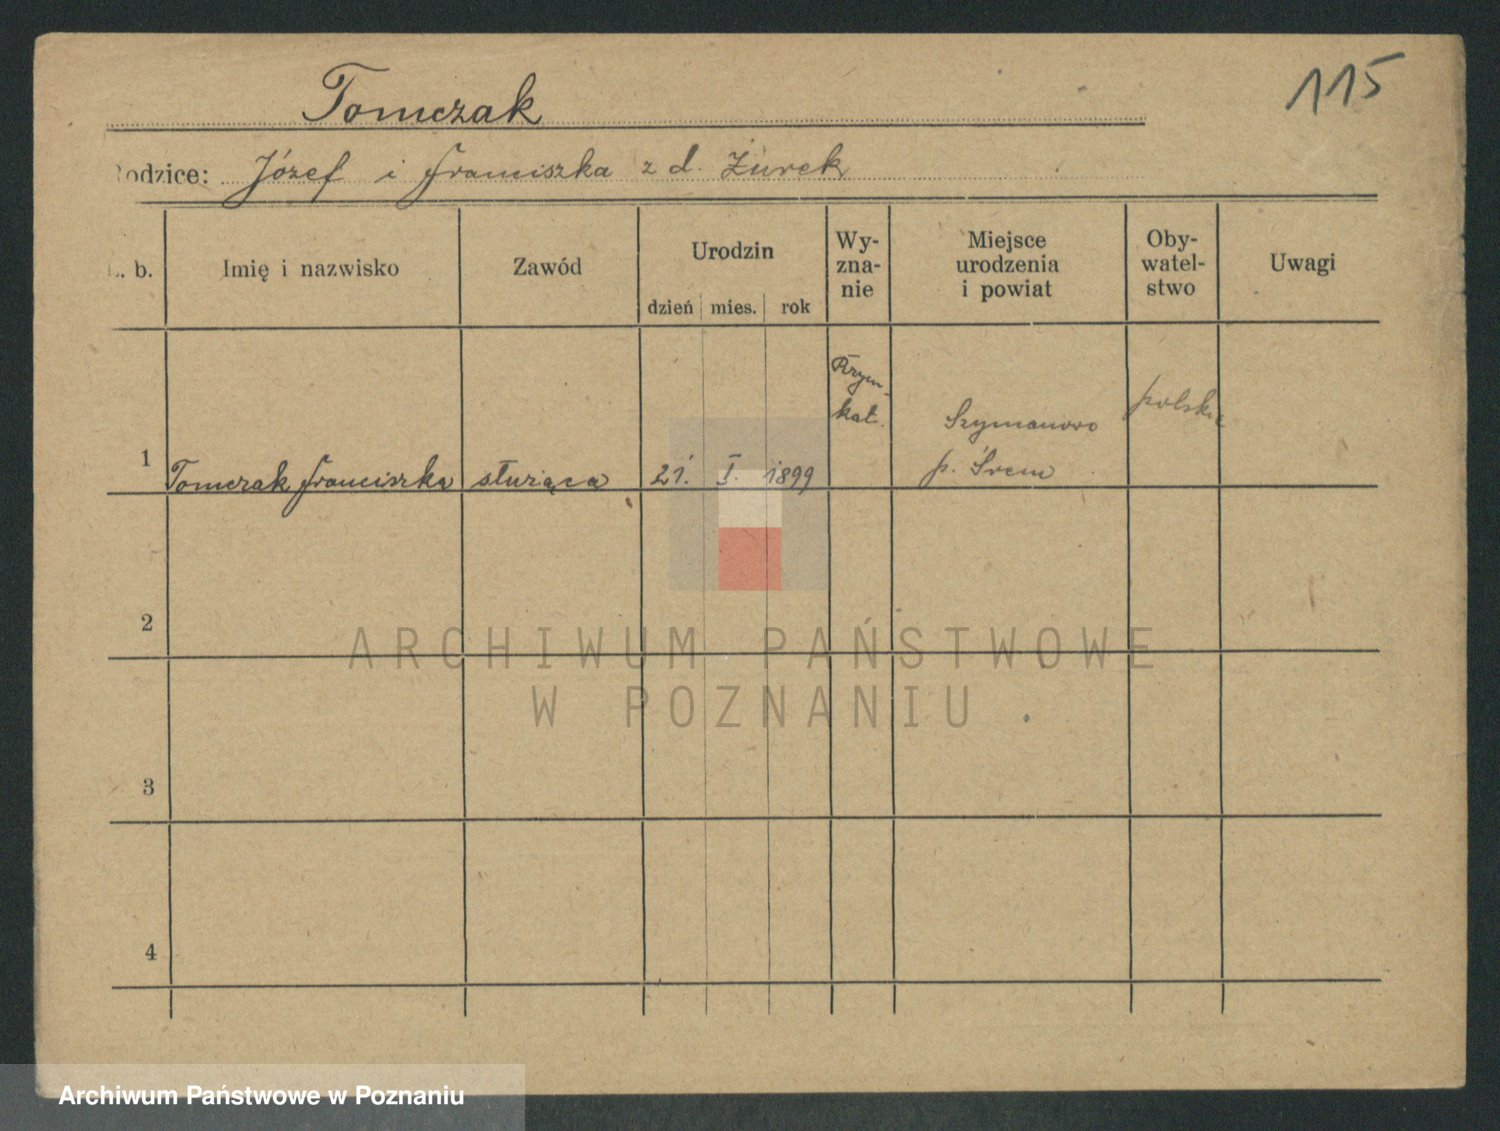 115
Tomczak
Rodzice: Józef i Franciszka z d. Żurek
L. b.
Imię i nazwisko
Zawód
Urodzin
dzień mies. rok
Wy-
zna-
nie
Miejsce
urodzenia
i powiat
Oby-
watel-
stwo
Uwagi
1
Tomczak Franciszka
służąca
21. I. 1899
Rzym.-
kat.
Szymanowo
p. Śrem
polskie
2
3
4
ARCHIWUM PAŃSTWOWE
W POZNANIU
Archiwum Państwowe w Poznaniu